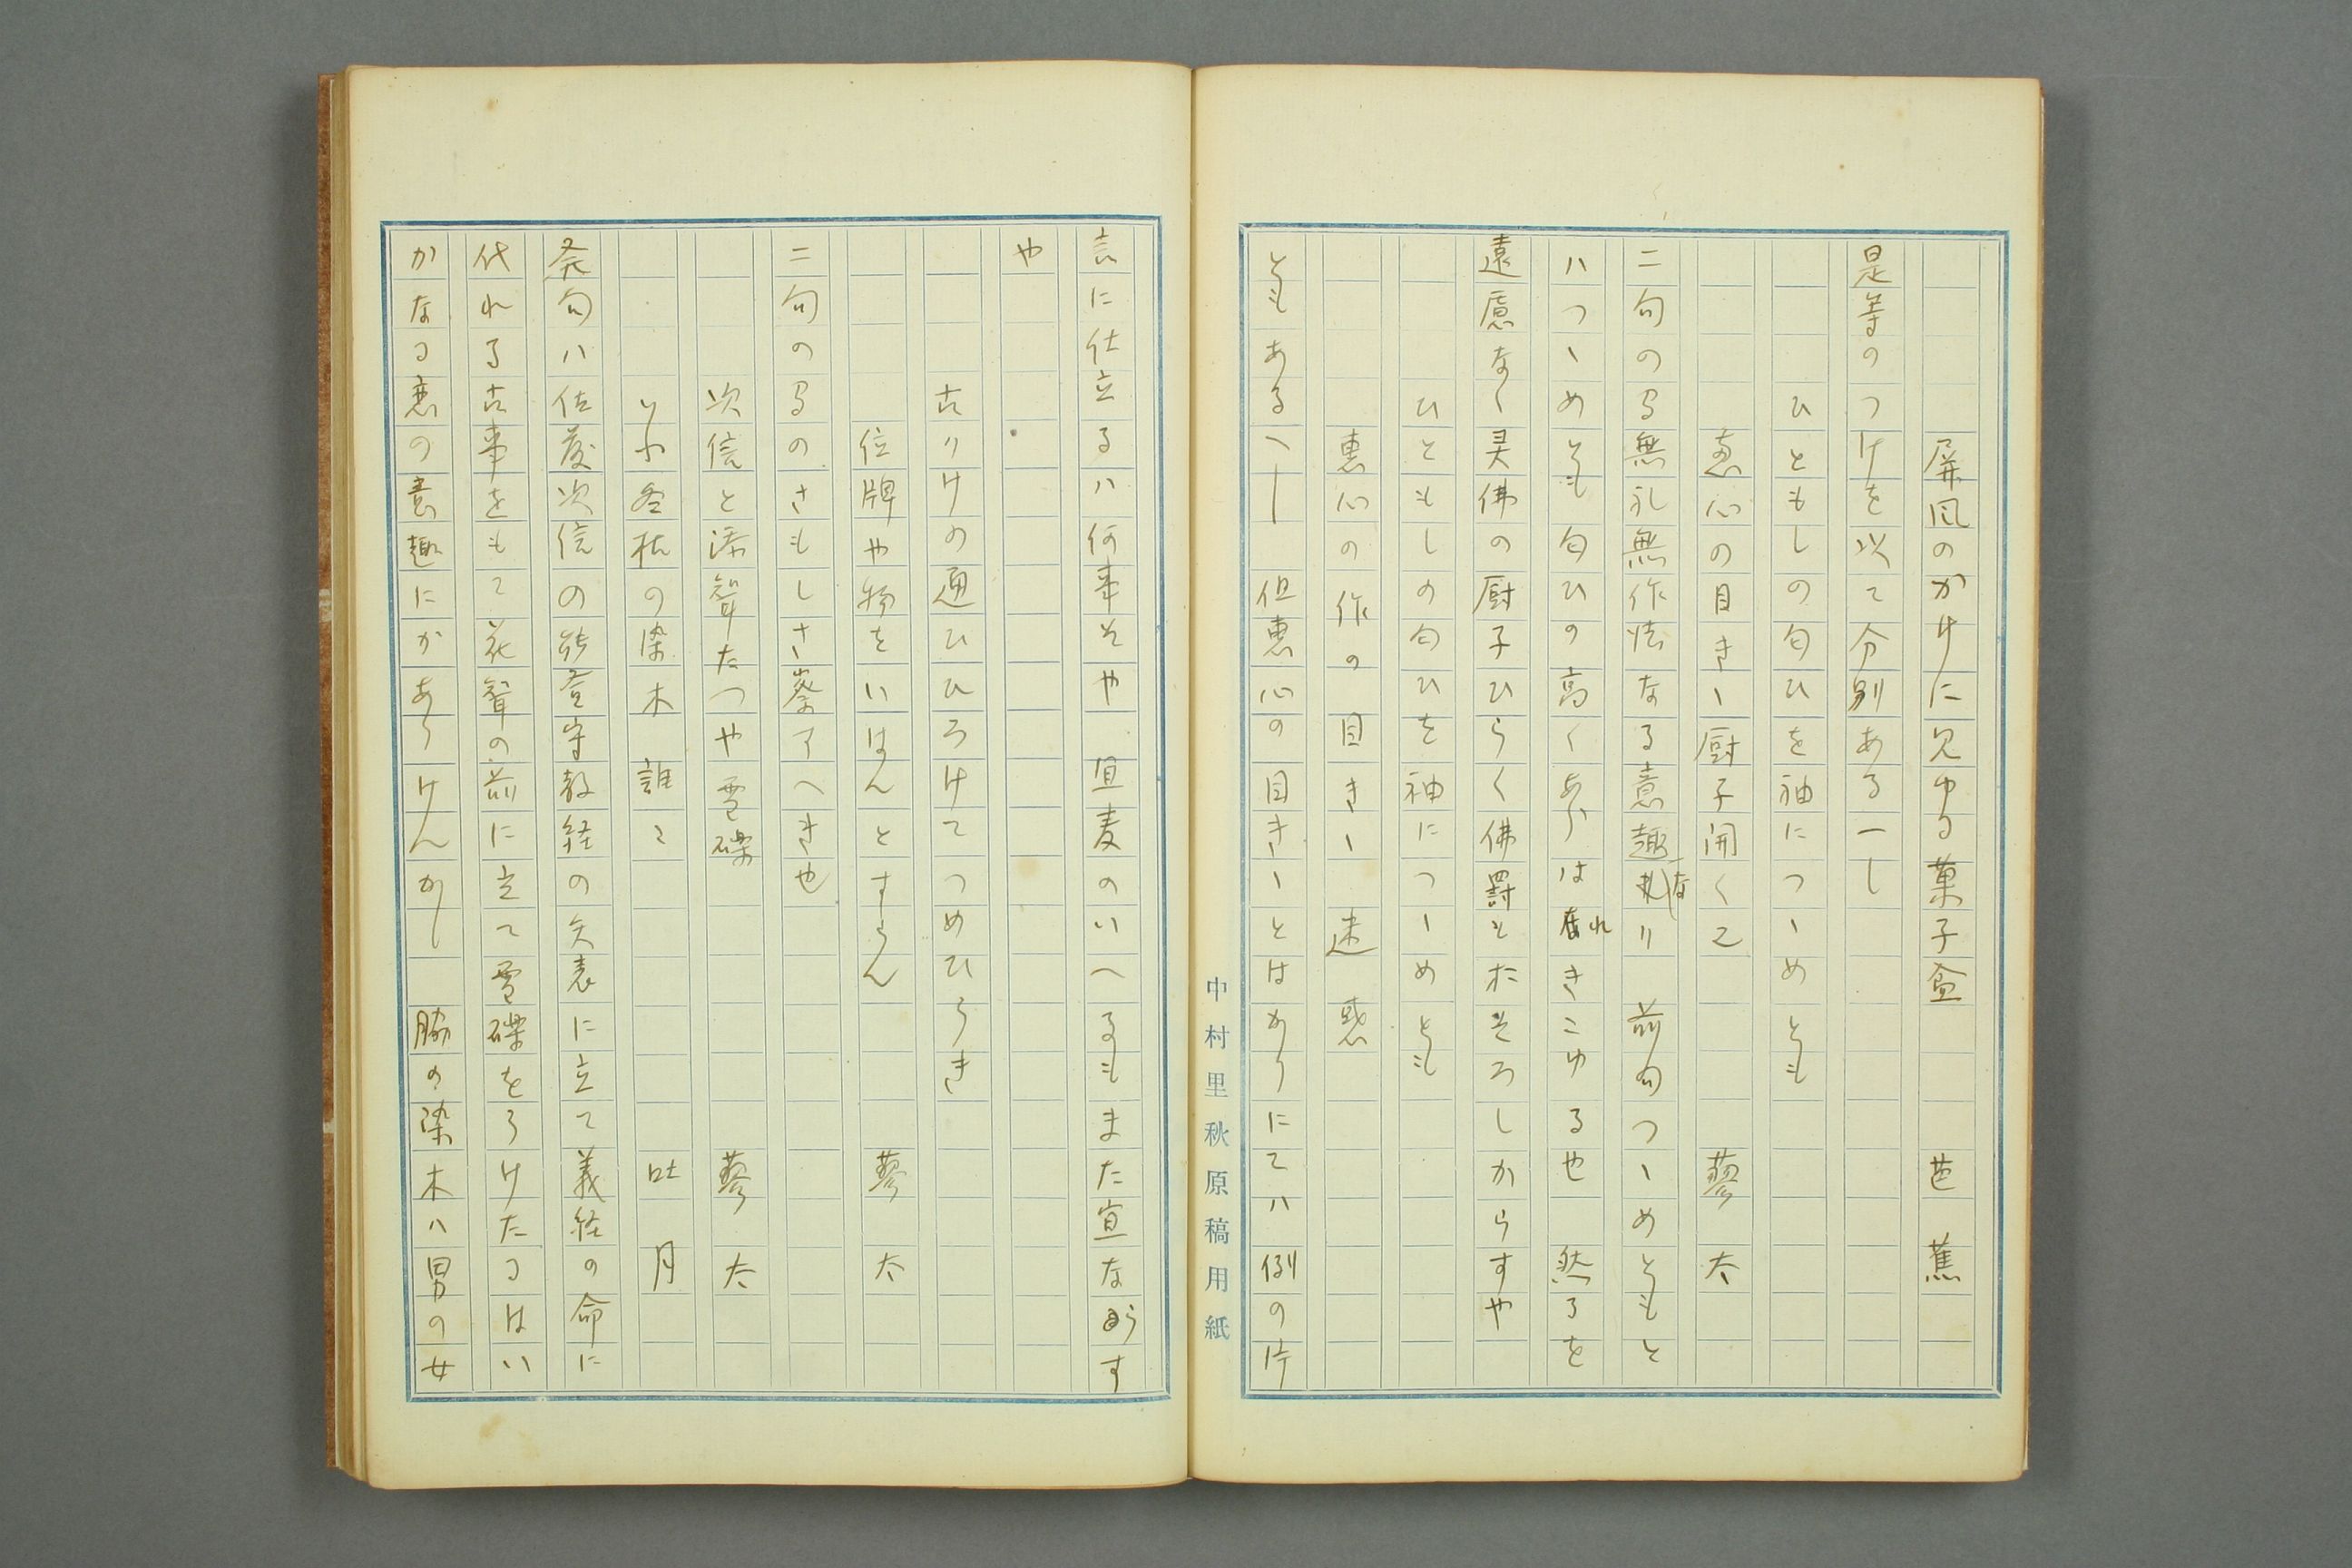 屏風のかけに見ゆる菓子盆　芭蕉
是等のつけを以て分別あるへし
ひともしの匂ひを袖につゝめとも
恵心の目きゝ厨子開くて　蓼太
二句の間無礼無作法なる意趣なり　前句つゝめともと
ハつゝめとも匂ひの高くあらはれきこゆる也　然るを
遠慮なく灵佛の厨子ひらく佛罰もおそろしからすや
ひともしの匂ひを袖につゝめとも
恵心の作の目きゝ迷惑
ともあるへし　但恵心の目きゝとはかりにてハ例の片
中村里秋原稿用紙
言に仕立るハ何事そや　宜麦のいへるもまた宜ならす
や
古リけの通ひひろけてつめひらき
位牌や物をいはんとすらん　蓼太
二句の間のさもしさ察了へき也
次信と添聟たつや雪礫　蓼太
冬枯の染木誰〻　吐月
発句ハ佐藤次信の能登守教経の矢表に立て義経の命に
代れる古事をもて花聟の前に立て雪礫をうけたるはい
かなる恋の意趣にかありけんかし　脇の染木ハ男の女